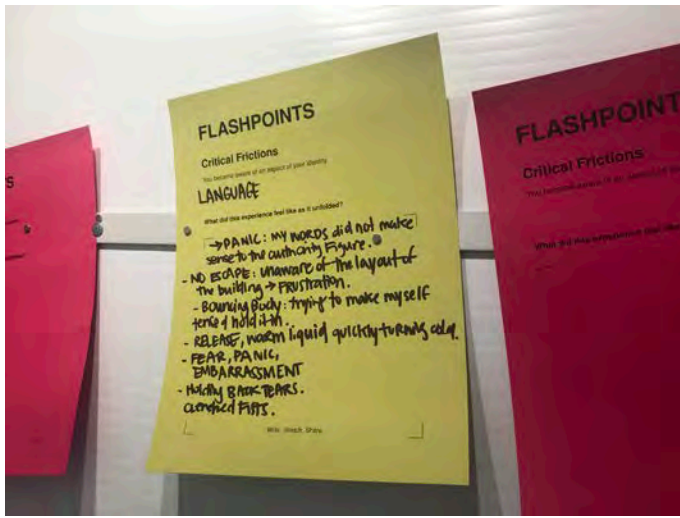 FLASHPOINTS
Critical Frictions
You became aware of an aspect of your identity
LANGUAGE
What did this experience feel like as it unfolded?
→ PANIC: MY WORDS did not make
sense to the authority Figure.
- NO ESCAPE: unaware of the layout of
The building → FRUSTRATION.
- Bouncing Body: trying to make myself
tense & hold it in.
- RELEASE, warm liquid quickly turning cold.
- FEAR, PANIC,
EMBARRASSMENT
- Holding BACK TEARS.
clenched FISTS.
Write. Sketch. Share.
S
FLASHPOINT
Critical Frictions
You became aware of an aspect of your
What did this experience feel like